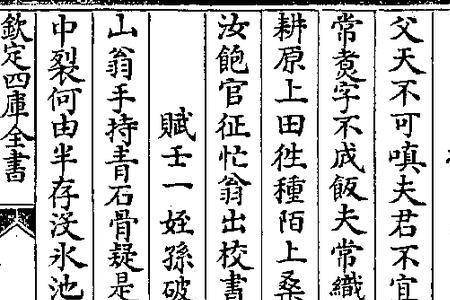 父天不可嗔夫君不宜
常煑字不成飯夫常織
耕原上田徃種陌上桑
汝飽官征忙翁出校書
賦壬一姪孫破
山翁手持青石骨疑是
中裂何由半存没氷池
欽定四庫全書